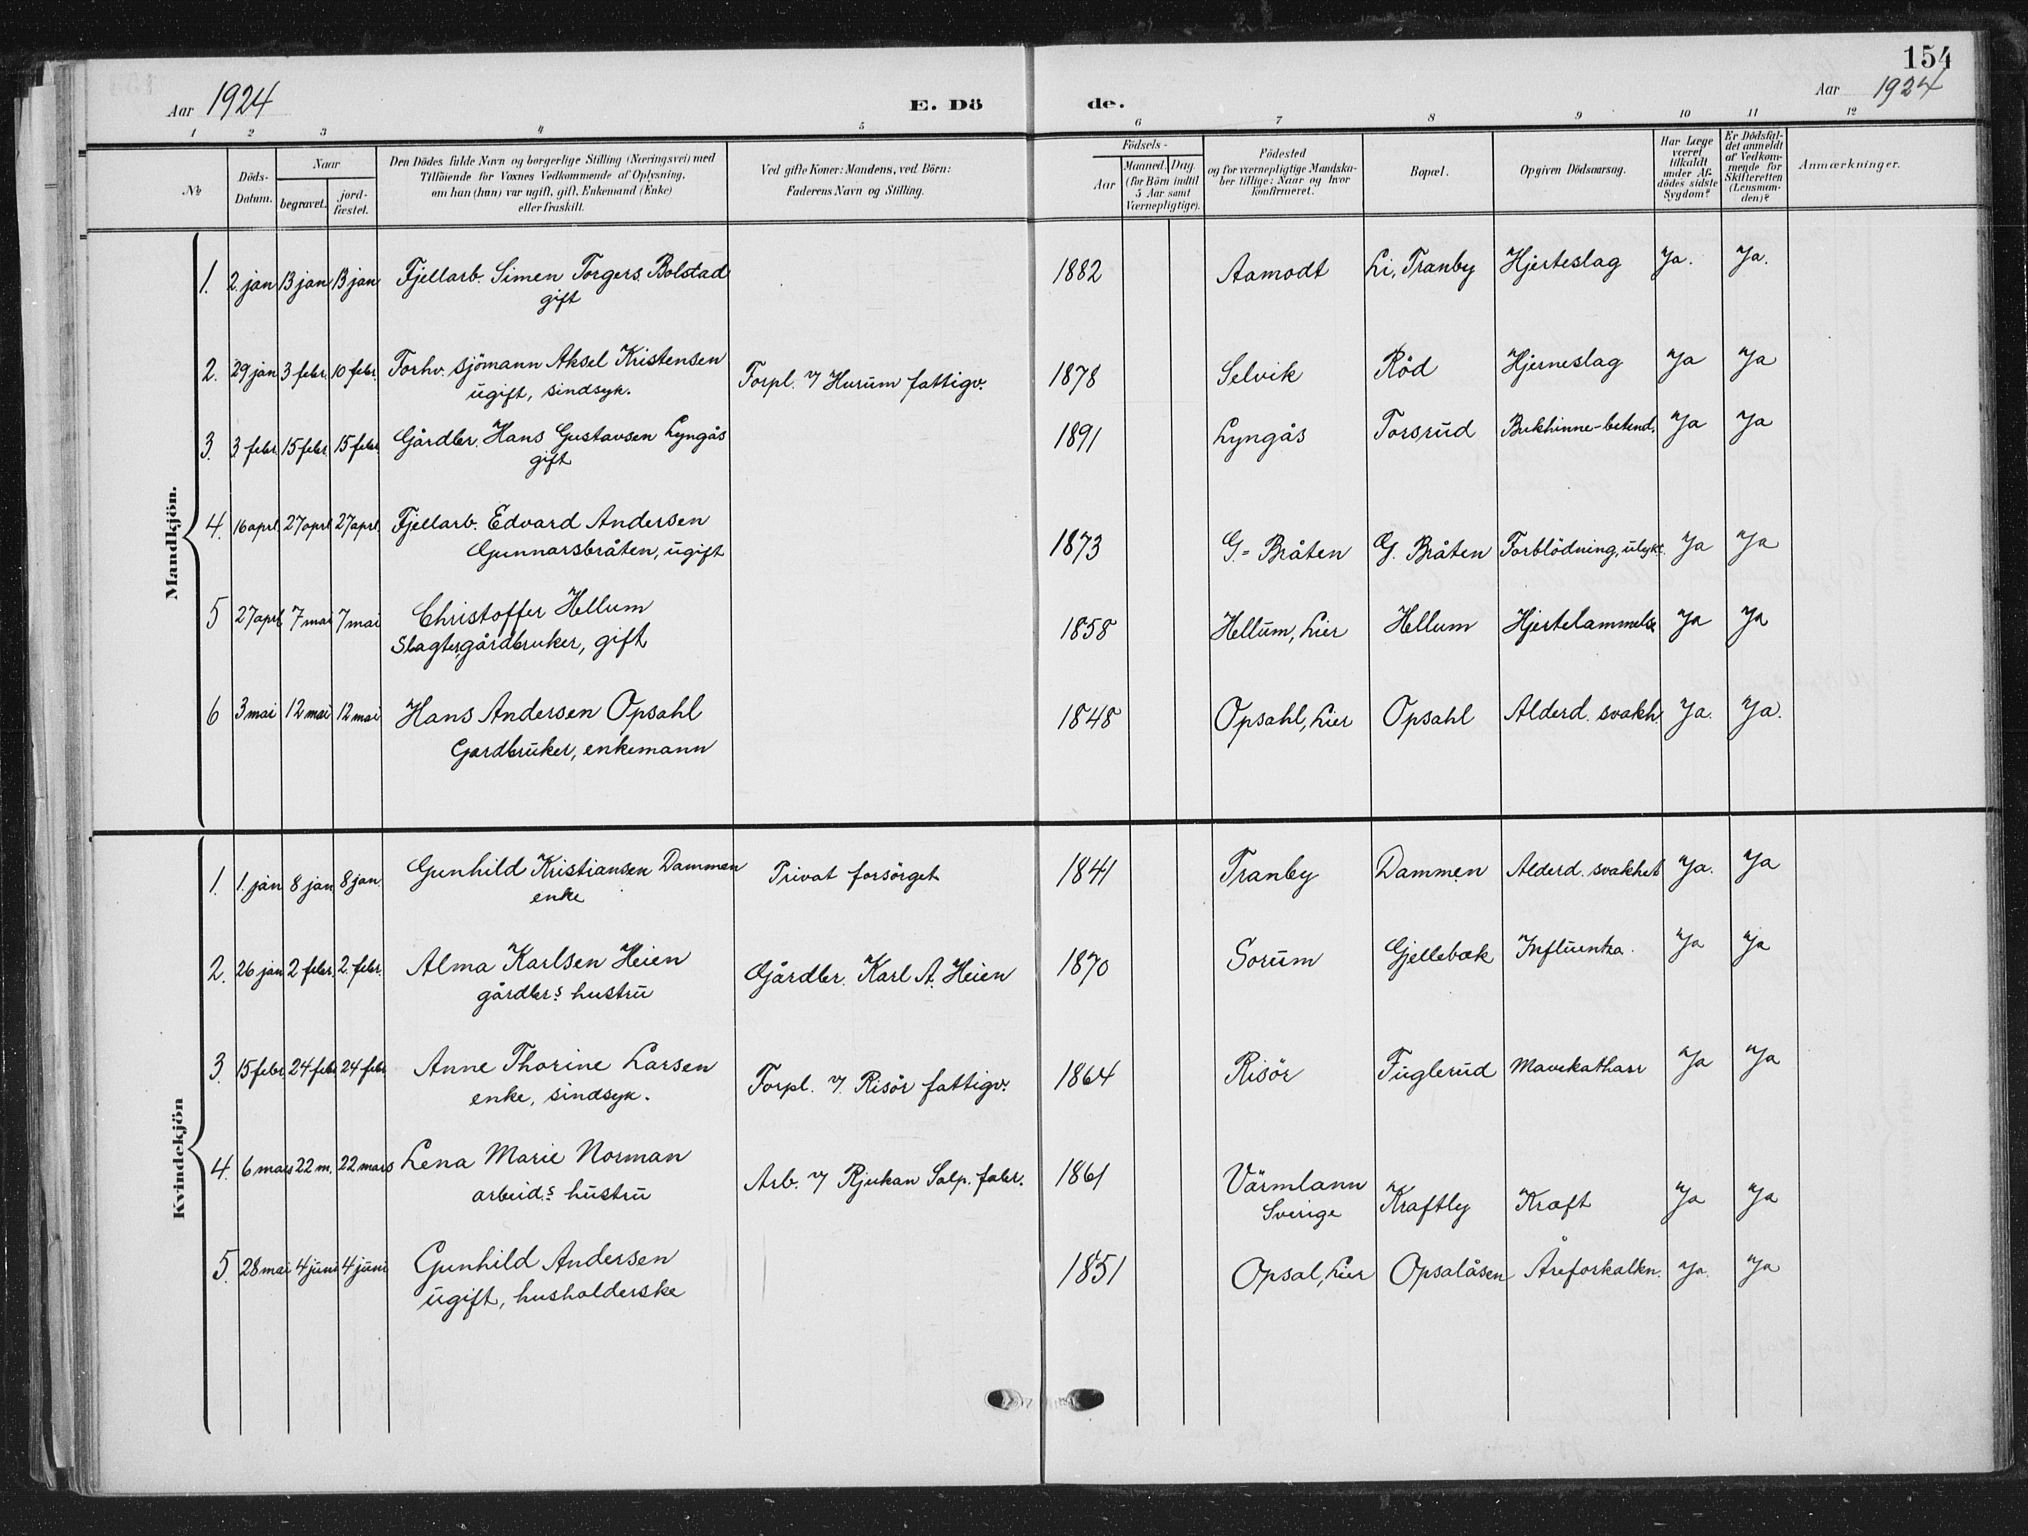 154
Aar 1924
E. Dö de.
Aar 1924
1 2 3 4 5 6 7 8 9 10 11 12
№
Döds-
Datum.
Naar
begravet.
jord-
fæstet.
Den Dödes fulde Navn og borgerlige Stilling (Næringsvei) med
Tilföiende for Voxnes Vedkommende af Oplysning,
om han (hun) var ugift, gift, Enkemand (Enke)
eller fraskilt.
Ved gifte Koner: Mandens, ved Börn:
Faderens Navn og Stilling.
Födsels-
Aar
Maaned. Dag.
(for Börn indtil
5 Aar samt
Værnepligtige).
Födested
og for værnepligtige Mandska-
ber tillige: Naar og hvor
konfirmeret.
Bopæl.
Opgiven Dödsaarsag.
Har Læge
været
tilkaldt
under Af-
dödes sidste
Sygdom?
Er Dödsfal-
det anmeldt
af Vedkom-
mende for
Skifteretten
(Lensman-
den)?
Anmærkninger.
Mandkjön.
1. 2 jan 13 jan 13 jan Fjellarb. Simen Torgers. Bolstad 1882 Aamodt Li, Tranby Hjerteslag Ja. Ja.
gift
2. 29 jan 3 febr. 10 febr. Forhv. sjömann Aksel Kristensen Forpl. v/ Hurum fattigv. 1878 Selvik Röd Hjerneslag Ja Ja
ugift, sindsyk.
3. 3 febr 15 febr. 15 febr Gårdbr. Hans Gustavsen Lyngås 1891 Lyngås Torsrud Bukhinne-betend. Ja Ja
gift
4. 16 apri 27 april 27 april Fjellarb. Edvard Andersen 1873 G.= Bråten G. Bråten Forblödning, ulyke. Ja Ja
Gunnarsbråten, ugift
5 27 april 7 mai 7 mai Christoffer Hellum 1858 Hellum, Lier Hellum Hjertelammelse Ja Ja
Slagter, gårdbruker, gift
6 3 mai 12 mai 12 mai Hans Andersen Opsahl 1848 Opsahl, Lier Opsahl Alderd. svakh. Ja. Ja.
Gardbruker, enkemann
Kvindekjön
1. 1. jan 8 jan 8 jan. Gunhild Kristiansen Dammen Privat forsörget 1841 Tranby Dammen Alderd. svakhet Ja. Ja
enke
2. 26 jan 2 febr. 2. febr. Alma Karlsen Heien Gårdbr. Karl A. Heien 1870 Sorum Gjellebæk Influenka. Ja Ja
gårdbr.s hustru
3. 15 febr. 24 febr 24 febr. Anne Thorine Larsen Forpl. v/ Risör fattigv. 1864 Risör Fuglerud Mavekatharr Ja Ja
enke, sindsyk.
4. 6 mars 22 m. 22 mars Lena Marie Norman Arb. v/ Rjukan Salp. fabr. 1861 Värmlann Kraftby Kræft Ja Ja
arbeid.s hustru Sverige
5. 28 mai 4 juni 4 juni Gunhild Andersen 1851 Opsal, Lier Opsalåsen Åreforkalkn. Ja. Ja
ugift, husholderske